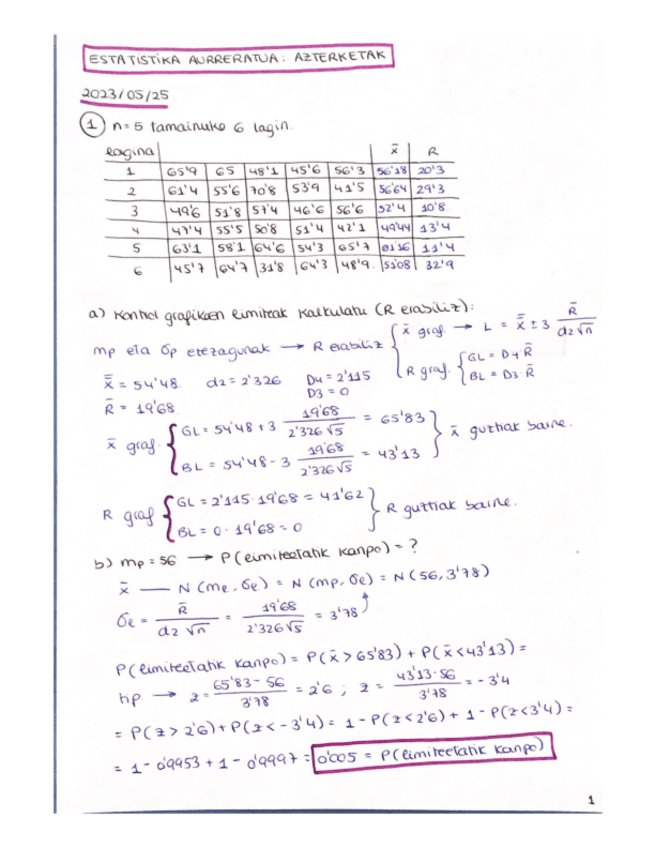 ESTATISTIKA AURRERATUA: AZTERKETAK
2023/05/25
1 n=5 tamainuko 6 lagin.
lagina x̄ R
1 65'9 65 48'1 45'6 56'3 56'18 20'3
2 61'4 55'6 70'8 53'9 41'5 56'64 29'3
3 49'6 51'8 57'4 46'6 56'6 52'4 10'8
4 47'4 55'5 50'8 51'4 42'1 49'44 13'4
5 63'1 58'1 64'6 54'3 65'7 61'16 11'4
6 45'7 64'7 31'8 64'3 48'9. 51'08 32'9
a) Kontrol grafikoen limiteak kalkulatu (R erabiliz):
mp eta σp ezezagunak → R erabiliz { x̄ graf. → L = x̿ ± 3 R̄/(d2√n)
R graf. { GL = D4·R̄
BL = D3·R̄
x̿ = 54'48. d2 = 2'326 D4 = 2'115
D3 = 0
R̄ = 19'68
x̄ graf. { GL = 54'48 + 3 19'68/(2'326√5) = 65'83
BL = 54'48 - 3 19'68/(2'326√5) = 43'13 } x̄ guztiak barne.
R graf { GL = 2'115·19'68 = 41'62
BL = 0·19'68 = 0 } R guztiak barne.
b) mp = 56 → P(limiteetatik kanpo) = ?
x̄ — N(me, σe) = N(mp, σe) = N(56, 3'78)
σe = R̄/(d2√n) = 19'68/(2'326√5) = 3'78
P(limiteetatik kanpo) = P(x̄ > 65'83) + P(x̄ < 43'13) =
tip. → z = (65'83 - 56)/3'78 = 2'6 ; z = (43'13 - 56)/3'78 = -3'4
= P(z > 2'6) + P(z < -3'4) = 1 - P(z < 2'6) + 1 - P(z < 3'4) =
= 1 - 0'9953 + 1 - 0'9997 = 0'005 = P(limiteetatik kanpo)
1